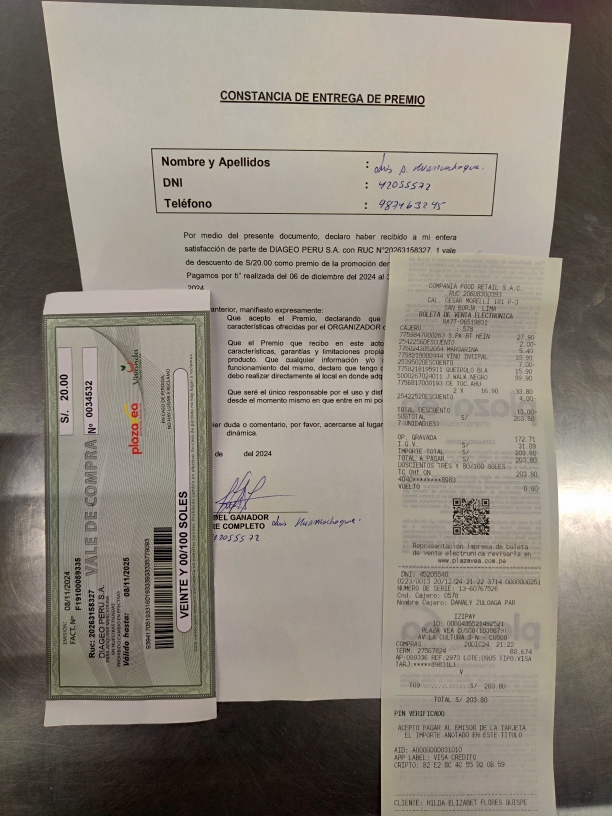 CONSTANCIA DE ENTREGA DE PREMIO
Nombre y Apellidos : Luis A. Huamanchoque.
DNI : 42055572
Teléfono : 987463245
Por medio del presente documento, declaro haber recibido a mi entera
satisfacción de parte de DIAGEO PERU S.A. con RUC N°20263158327, 1 vale
de descuento de S/20.00 como premio de la promoción
Pagamos por ti" realizada del 06 de diciembre del 2024 al
2024.
anterior, manifiesto expresamente:
Que acepto el Premio, declarando que
características ofrecidas por el ORGANIZADOR
Que el Premio que recibo en este acto
características, garantías y limitaciones
producto. Que cualquier información y/o
funcionamiento del mismo, declaro que tengo
debo realizar directamente al local en donde
Que seré el único responsable por el uso y
desde el momento mismo en que entre en mi
duda o comentario, por favor, acercarse al lugar
dinámica.
de del 2024
DEL GANADOR
RE COMPLETO Luis Huamanchoque.
2055572
S/. 20.00
VALE DE COMPRA Nº 0034532
plaza vea
Vivanda
VEINTE Y 00/100 SOLES
EMISIÓN: 08/11/2024
FACT. Nº F19100059335
Ruc: 20263158327
DIAGEO PERU S.A.
Válido hasta: 08/11/2025
COMPANIA FOOD RETAIL S.A.C.
RUC 20608300393
CAL. CESAR MORELLI 181 P-3
SAN BORJA, LIMA
BOLETA DE VENTA ELECTRONICA
BA77-06519831
CAJERO : 578
27.90
2542256DESCUENTO 2.00-
7750243052064 MARGARINA 5.40
7758218000444 VINO INTIPAL 33.90
2539502DESCUENTO 7.00-
7758218195911 QUEIROLO BLA 15.90
5000267024011 J WALK.NEGRO 99.90
7756817000193 CE TOC.AHU
2 X 16.90 33.80
2542252DESCUENTO 4.00-
TOTAL DESCUENTO 13.00-
SUBTOTAL S/ 203.80
7 UNIDAD(ES)
OP. GRAVADA 172.71
I.G.V. S/ 31.09
IMPORTE TOTAL S/ 203.80
TOTAL A PAGAR S/ 203.80
DOSCIENTOS TRES Y 80/100 SOLES
TC Oh! ON 203.80
VUELTO 0.00
Representacion impresa de boleta
de venta electronica revisarla en
www.plazavea.com.pe
NUMERO DE SERIE: 13-60767526
Cod. Cajero: 0578
Nombre Cajero: DANALY ZULOAGA PAR
IZIPAY
PLAZA VEA CUSCO
AV LA CULTURA S-N - CUSCO
COMPRA 20DIC24 21:22
TERM: 27567824
AP:099336 REF:2973 LOTE:0905 TIPO:VISA
S/ 203.80
TOTAL S/ 203.80
PIN VERIFICADO
ACEPTO PAGAR AL EMISOR DE LA TARJETA
EL IMPORTE ANOTADO EN ESTE TITULO
AID: A0000000031010
APP LABEL: VISA CREDITO
CLIENTE: HILDA ELIZABET FLORES QUISPE